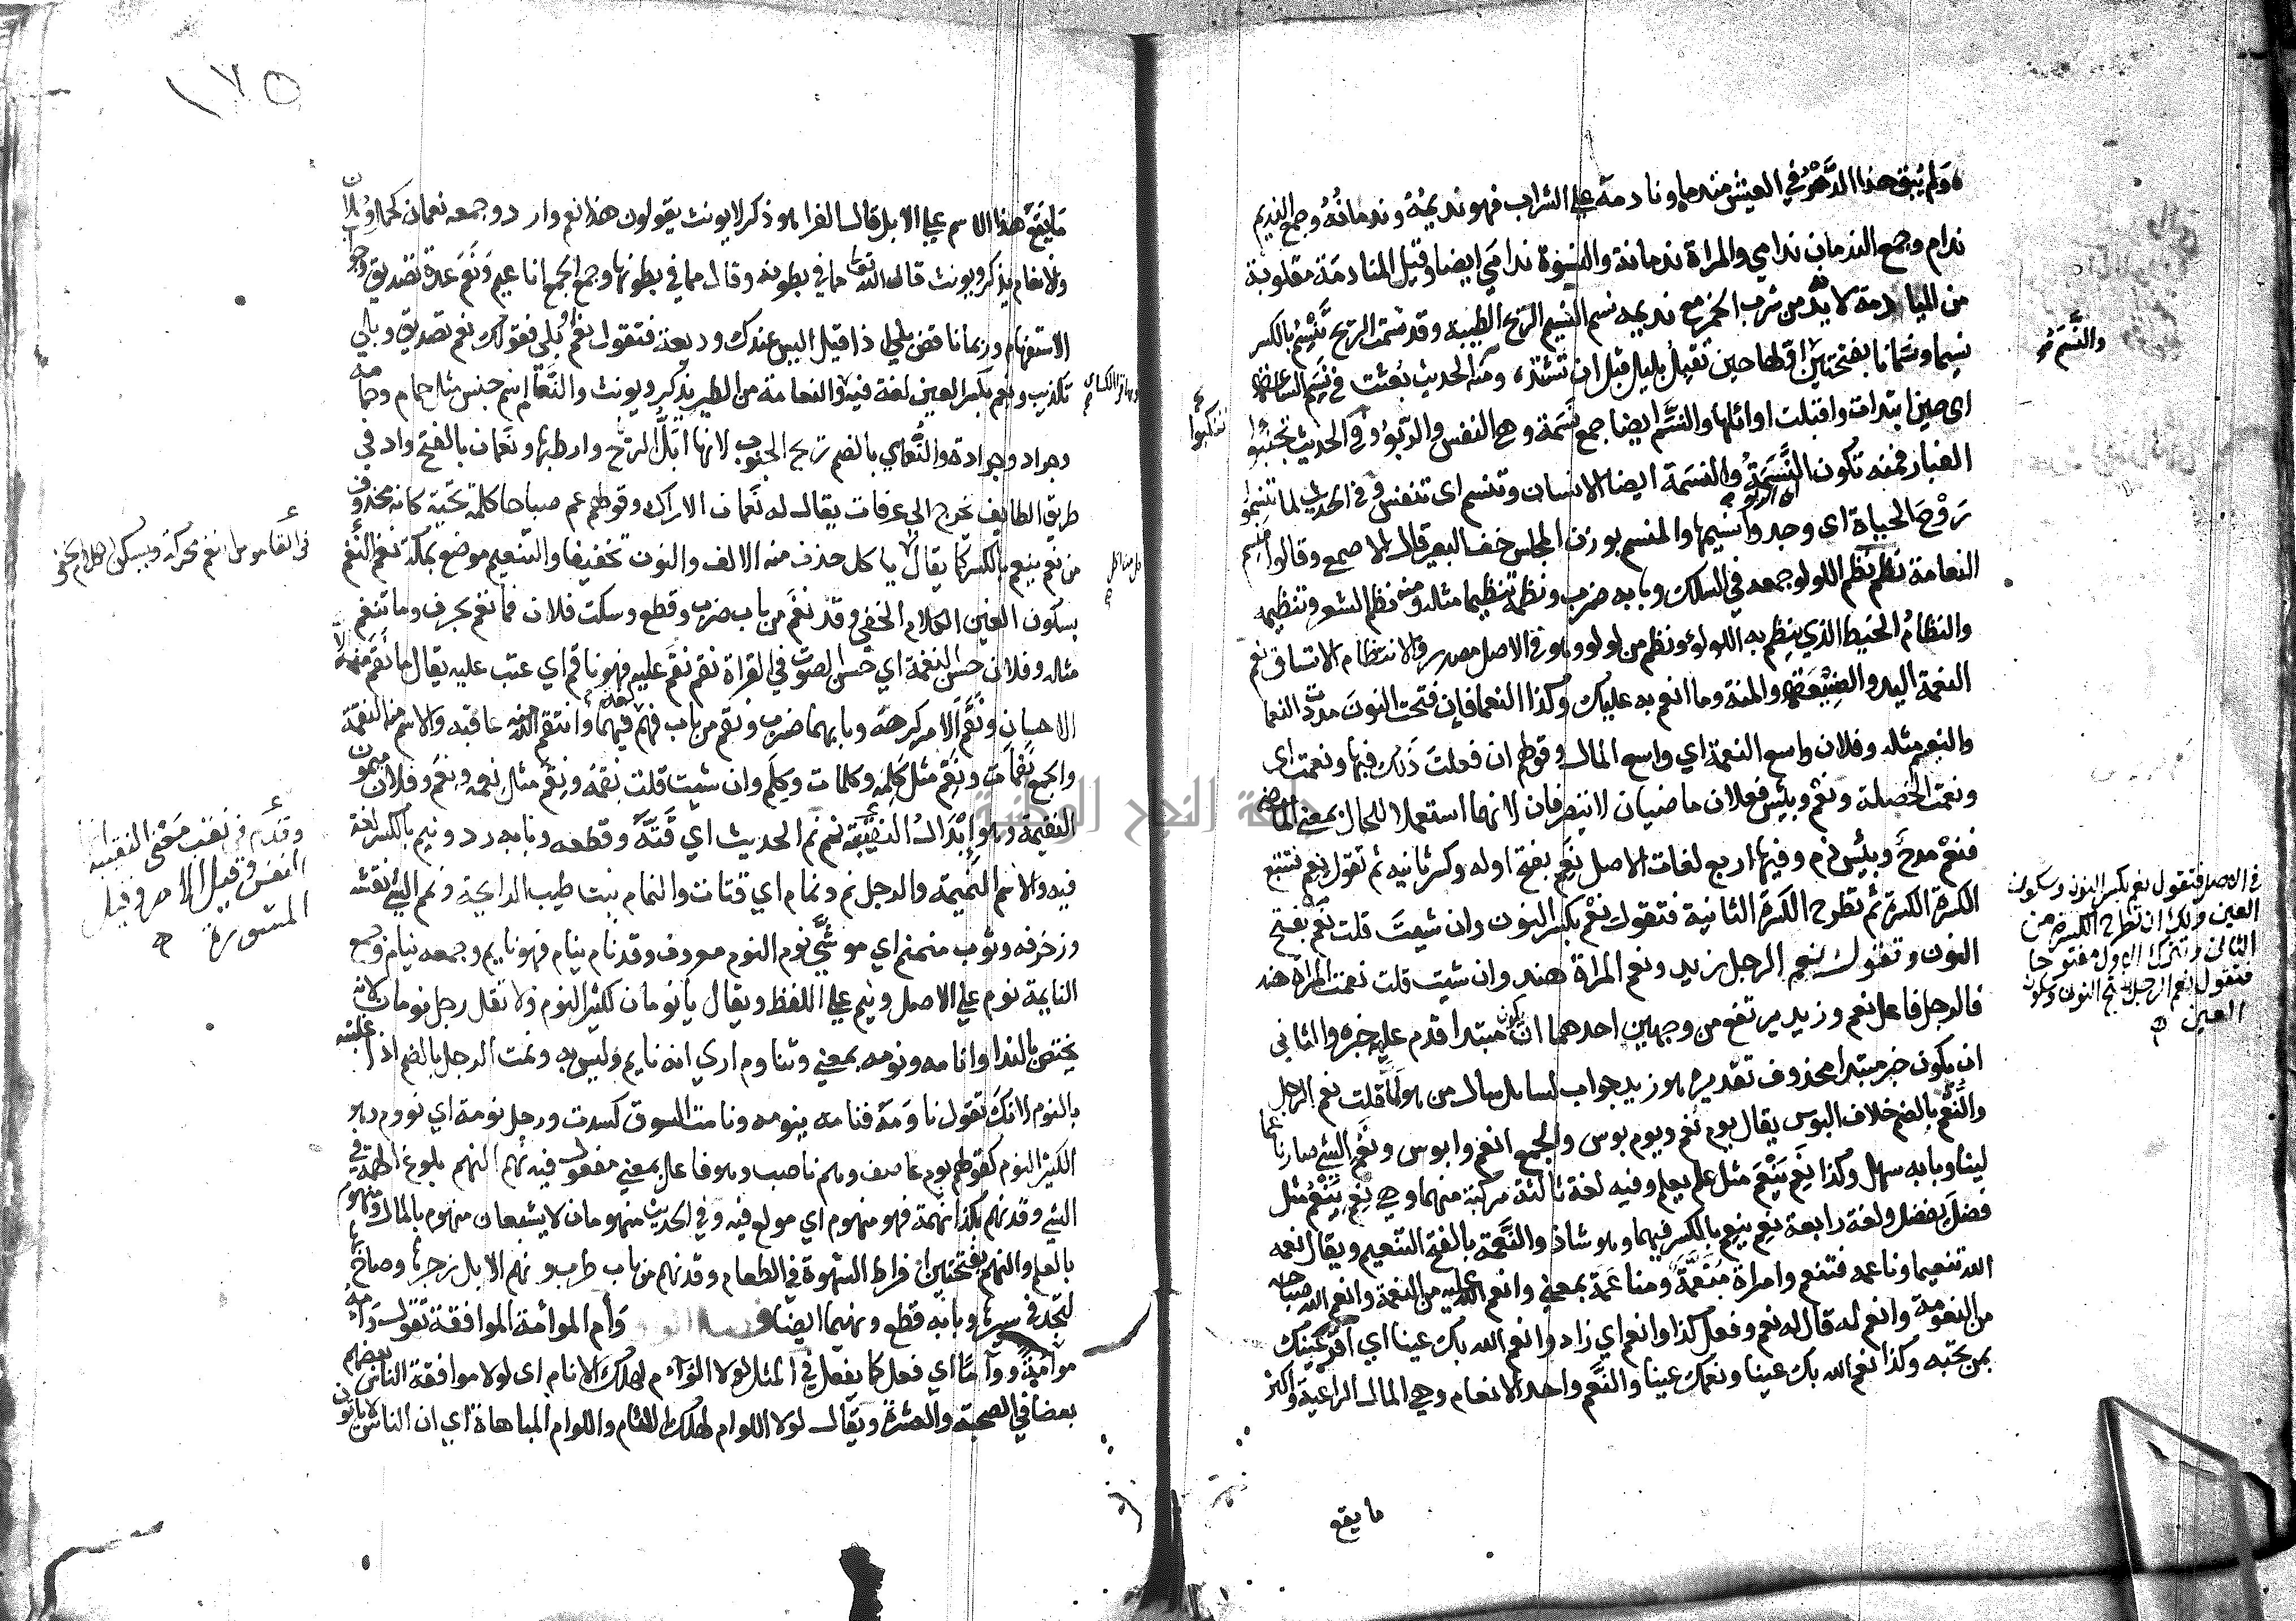 ولم يبق هذا الدهر في العيش مندما ونادمه علي الشراب فهو نديمه وندمانه وجمع النديم
ندام وجمع الندمان ندامي والمراة ندمانة والنسوة ندامي ايضا وقيل المنادمة مقلوبة
من المدامنة لانه يدمن شرب الخمر مع نديمه نسم النسيم الريح الطيبة وقد نسمت الريح تنسم بالكسر
نسيما ونسمانا بفتحتين
والنسم
اي حين ابتدات واقبلت اوائلها والنسم ايضا جمع نسمة وهي النفس والربو وفي الحديث تجنبوا
تنكبوا
الغبار فمنه تكون النسمة والنسمة ايضا الانسان وتنسم اي تنفس وفي الحديث لما تنسموا
روح الحياة اي وجدوا نسيمها والمنسم بوزن المجلس خف البعير قال الاصمعي وقالوا منسم
النعامة نظم نظم اللولو جمعه في السلك وبابه ضرب ونظمه تنظيما مثله ومنه نظم الشعر وتنظيمه
والنظام الخيط الذي ينظم به اللولو ونظم من لولو وهو في الاصل مصدر والانتظام الاتساق نعم
النعمة اليد والصنيعة والمنة وما انعم به عليك وكذا النعما فان فتحت النون مددت النعما
والنعيم مثله وفلان واسع النعمة اي واسع المال وقولهم ان فعلت ذلك فبها ونعمت اي
ونعمت الخصلة ونعم وبئس فعلان ماضيان لا يتصرفان لانهما استعملا للحال بمعني الماضي
فنعم مدح وبئس ذم وفيها اربع لغات الاصل نعم بفتح اوله وكسر ثانيه ثم تقول نعم فتتبع
الكسرة الكسرة ثم تطرح الكسرة الثانية فتقول نعم بكسر النون وان شيت قلت نعم بفتح
في الاصل فتقول نعم بكسر النون وسكون
العين ولك ان تطرح الكسرة من
الثاني وتترك الاول مفتوحا
فتقول نعم الرجل بفتح النون وسكون
العين
النون وتقول نعم الرجل زيد ونعم المراة هند وان شيت قلت نعمت المراة هند
فالرجل فاعل نعم وزيد يرتفع من وجهين احدهما ان يكون مبتدا قدم عليه خبره والثاني
ان يكون خبر مبتدا محذوف تقديره هو زيد جواب لسايل سال من هو لما قلت نعم الرجل
والنعم بالضم خلاف البوس يقال يوم نعم ويوم بوس والجمع انعم وابوس ونعم الشي صار ناعما
لينا وبابه سهل وكذا نعم ينعم مثل علم يعلم وفيه لغة ثالثة مركبة منهما وهي نعم ينعم مثل
فضل يفضل ولغة رابعة نعم ينعم بالكسر فيهما وهو شاذ والنعمة بالفتح التنعيم ويقال نعمه
الله تنعيما وناعمه فتنعم وامراة منعمة ومناعمة بمعني وانعم الله عليه من النعمة وانعم الله صباحه
من النعومة وانعم له قال له نعم وفعل كذا وانعم اي زاد وانعم الله بك عينا اي اقر عينك
بمن تحبه وكذا نعم الله بك عينا ونعمك عينا والنعم واحد الانعام وهي المال الراعية واكثر
ما يقع
١٧٥
ما يقع هذا الاسم علي الابل قال الفرا هو ذكر لا يونث يقولون هذا نعم وارد وجمعه نعمان كحمل وحملان
والانعام يذكر ويونث قال الله تعالى مما في بطونه وقال مما في بطونها وجمع الجمع اناعيم ونعم عدة تصديق وجواب
الاستفهام وربما ناقض بلي اذا قيل اليس عندك وديعة فتقول نعم بلي فقولك نعم تصديق وبلي
تكذيب ونعم بكسر العين لغة فيه والنعامة من الطير يذكر ويونث والنعام اسم جنس مثل حمام وحمامة
وجراد وجرادة والنعامي بالضم ريح الجنوب لانها ابل الرياح وارطبها ونعمان بالفتح واد في
طريق الطايف يخرج الي عرفات يقال له نعمان الاراك وقولهم عم صباحا كلمة تحية كانه محذوف
من نعم ينعم بالكسر كما يقال كل من اكل ياكل حذف منه الالف والنون تخفيفا والتنعيم موضع بمكة نغم النغم
في القاموس النغم محركة ويسكن الكلام الخفي
بسكون الغين الكلام الخفي وقد نغم من باب ضرب وقطع وسكت فلان فما نغم بحرف وما تنغم
مثله وفلان حسن النغمة اي حسن الصوت في القراة نقم نقم عليه فهو ناقم اي عتب عليه يقال ما نقم منه الا
الاحسان ونقم الامر كرهه وبابهما ضرب ونقم من باب فهم لغة فيهما وانتقم الله منه عاقبه والاسم منه النقمة
والجمع نقمات ونقم مثل كلمة وكلمات وكلم وان شيت قلت نقمة ونقم مثل نعمة ونعم وفلان ميمون
النقيمة وهو ابدال النقيبة نمم نم الحديث اي قته وقطعه وبابه رد وينم بالكسر لغة
وقدم في نقب معني النقيبة انها
النفس وقيل الامر وقيل
المشورة
فيه والاسم النميمة والرجل نم ونمام اي قتات والنمام نبت طيب الرايحة ونمنم الشي نقشه
وزخرفه وثوب منمنم اي موشي نوم النوم معروف وقد نام ينام فهو نايم وجمعه نيام وجمع
النايمة نوم علي الاصل ونيم علي اللفظ ويقال يا نومان لكثير النوم ولا تقل رجل نومان لانه
يختص بالندا وانامه ونومه بمعني وتناوم اري انه نايم وليس به ونمت الرجل بالضم اذا غلبته
بالنوم لانك تقول ناومه فنامه ينومه ونامت السوق كسدت ورجل نومة اي نووم وهو
الكثير النوم كقولهم يوم عاصف وهم ناصب وهو فاعل بمعني مفعول فيه نهم النهم بلوغ الهمة في
الشي وقد نهم بكذا نهمة فهو منهوم اي مولع فيه وفي الحديث منهومان لا يشبعان منهوم بالمال ومنهوم
بالعلم والنهم بفتحتين افراط الشهوة في الطعام وقد نهم من باب طرب ونهم الابل زجرها وصاح بها
لتجد في سيرها وبابه قطع ونهيما ايضا وأم الموائمة الموافقة تقول واءمه
مواءمة ووآما اي فعل كما يفعل في المثل لولا الوآم لهلك الانام اي لولا موافقة الناس بعضهم
بعضا في الصحبة والعشرة ويقال لولا اللوام لهلك اللئام واللوام المباهاة اي ان الناس لا ياتون